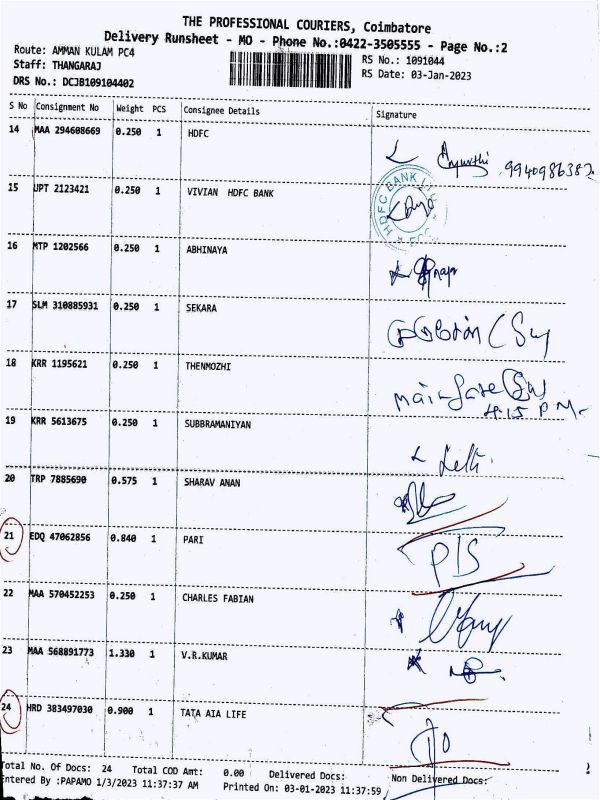 THE PROFESSIONAL COURIERS, Coimbatore
Delivery Runsheet - MO - Phone No.:0422-3505555 - Page No.:2
Route: AMMAN KULAM PC4
RS No.: 1091044
Staff: THANGARAJ
RS Date: 03-Jan-2023
DRS No.: DCJB109104402
S No Consignment No Weight PCS Consignee Details Signature
14 MAA 294608669 0.250 1 HDFC
9940986382
15 UPT 2123421 0.250 1 VIVIAN HDFC BANK
HDFC BANK
16 MTP 1202566 0.250 1 ABHINAYA
17 SLM 310885931 0.250 1 SEKARA
18 KRR 1195621 0.250 1 THENMOZHI
4.15 P.M.
19 KRR 5613675 0.250 1 SUBBRAMANIYAN
20 TRP 7885690 0.575 1 SHARAV ANAN
21 EDQ 47062856 0.840 1 PARI
P/S
22 MAA 570452253 0.250 1 CHARLES FABIAN
23 MAA 568891773 1.330 1 V.R.KUMAR
24 HRD 383497030 0.900 1 TATA AIA LIFE
Total No. Of Docs: 24 Total COD Amt: 0.00 Delivered Docs: Non Delivered Docs:
Entered By :PAPAMO 1/3/2023 11:37:37 AM Printed On: 03-01-2023 11:37:59